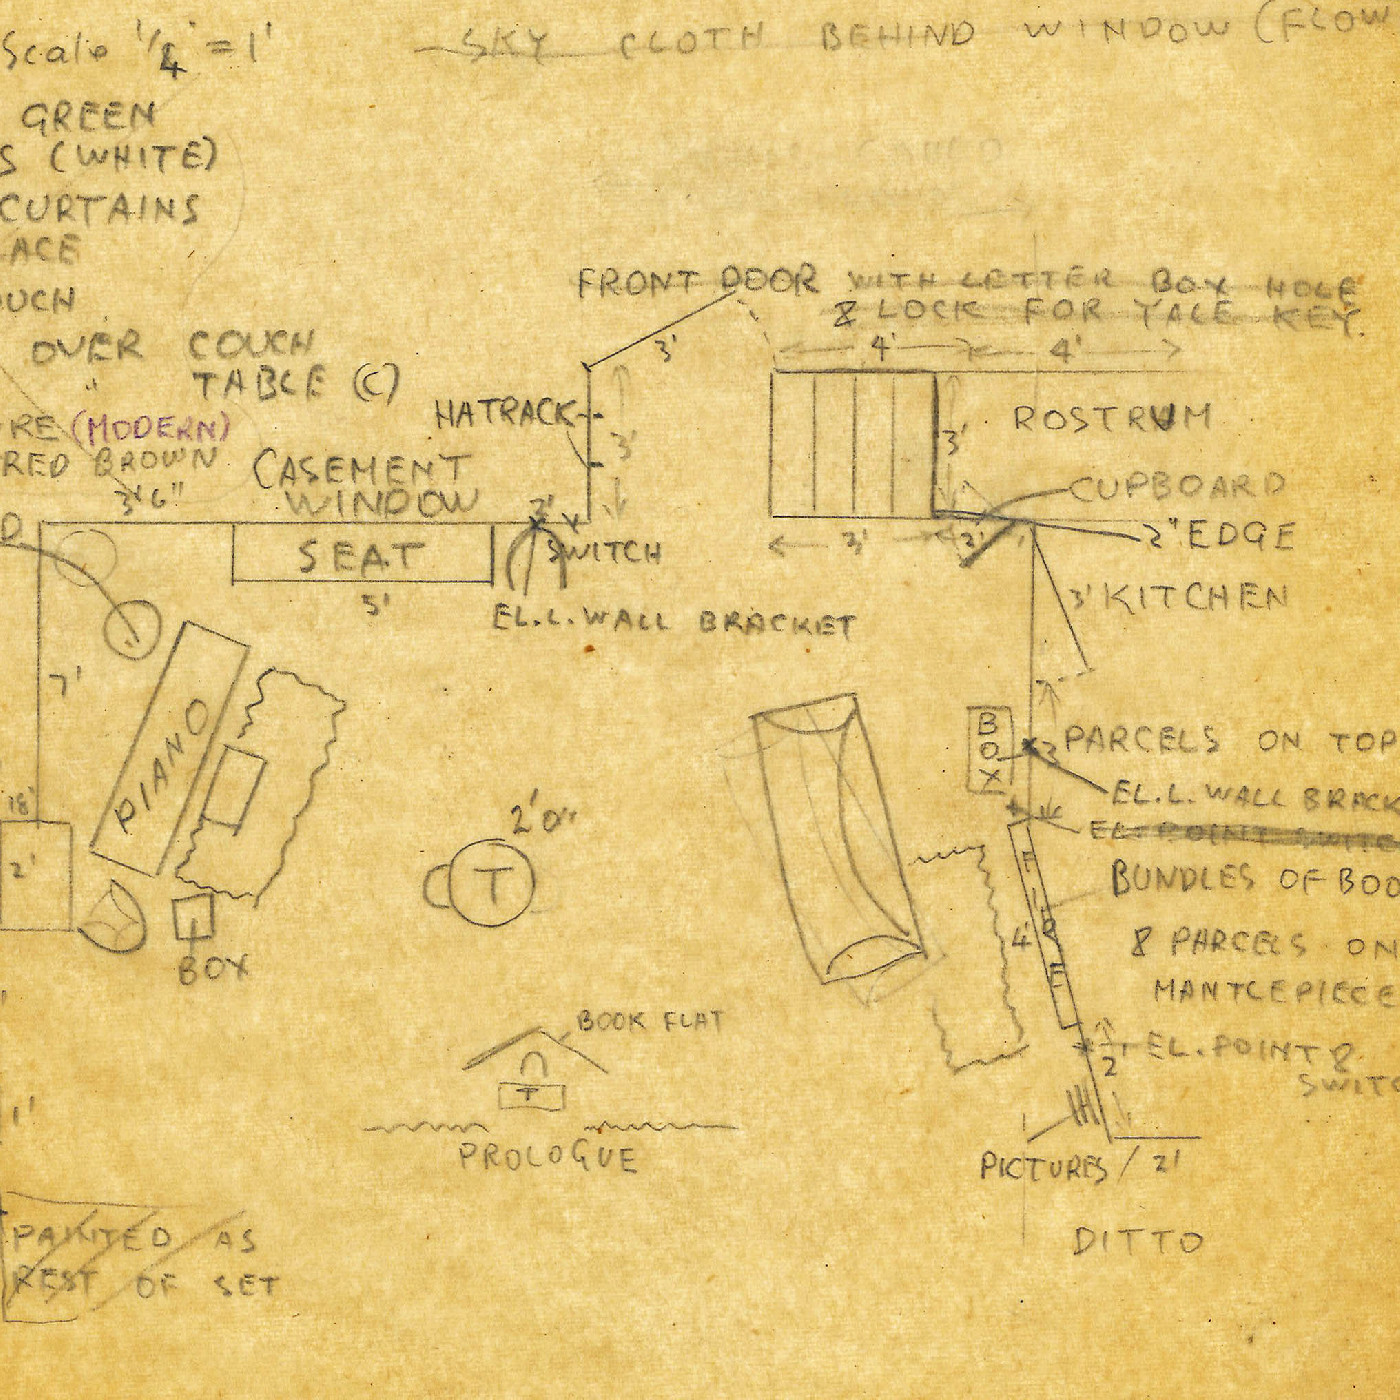 Scale 1/4" = 1'
SKY CLOTH BEHIND WINDOW (FLOW
GREEN
S (WHITE)
CURTAINS
LACE
OUCH
OVER COUCH
" TABLE (C)
RE (MODERN)
RED BROWN
3'6"
FRONT DOOR WITH LETTER BOX HOLE
& LOCK FOR YALE KEY.
3'
4' 4'
HATRACK
3'
3'
ROSTRUM
CASEMENT
WINDOW
CUPBOARD
2'
SWITCH
SEAT
5'
EL.L. WALL BRACKET
3' 2'
2" EDGE
3' KITCHEN
D
7'
PIANO
18"
2'
BOX
2'0"
T
BOX
3
PARCELS ON TOP
EL.L. WALL BRACK
EL. POINT SWITC
FIRE
4'
BUNDLES OF BOO
& PARCELS ON
MANTLEPIECE
EL. POINT &
SWITC
2
BOOK FLAT
T
PROLOGUE
1'
PICTURES / 2'
DITTO
PAINTED AS
REST OF SET